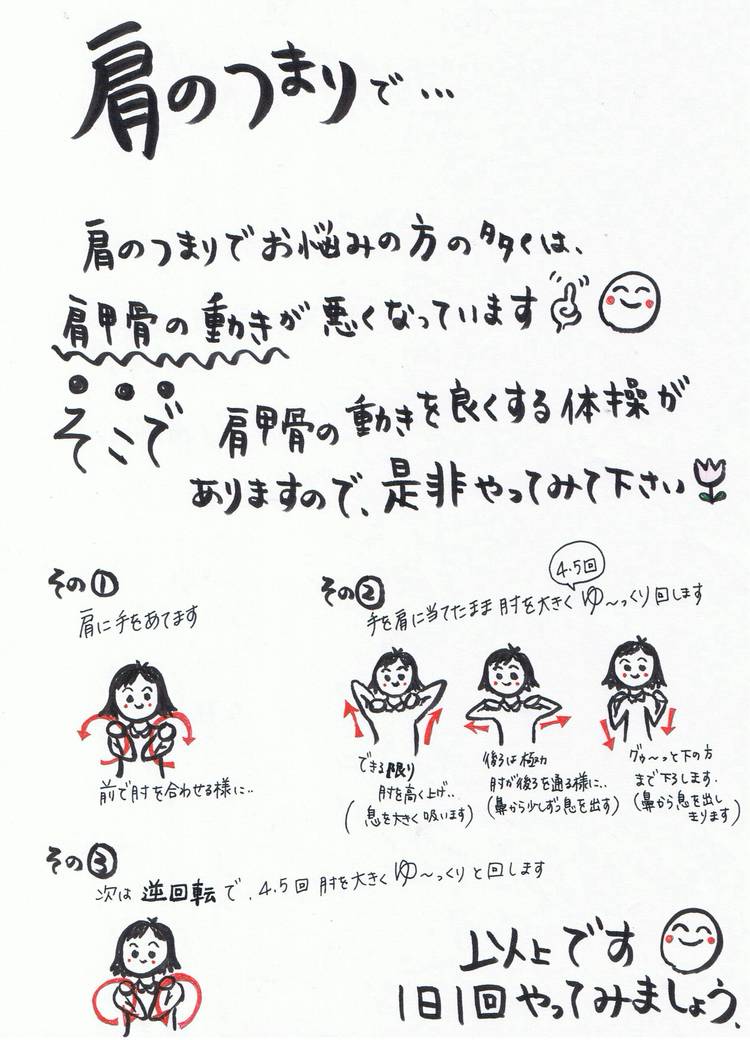 肩のつまりで…
肩のつまりでお悩みの方の多くは、
肩甲骨の動きが悪くなっています
そこで 肩甲骨の動きを良くする体操が
ありますので、是非やってみて下さい
その①
肩に手をあてます
前で肘を合わせる様に..
その②
4.5回
手を肩に当てたまま肘を大きくゆ〜っくり回します
できる限り
肘を高く上げ..
(息を大きく吸います)
後ろは極力
肘が後ろを通る様に..
(鼻から少しずつ息を出す)
グゥ〜っと下の方
まで下ろします.
(鼻から息を出し
きります)
その③
次は逆回転で、4.5回 肘を大きくゆ〜っくりと回します
以上です
1日1回やってみましょう、